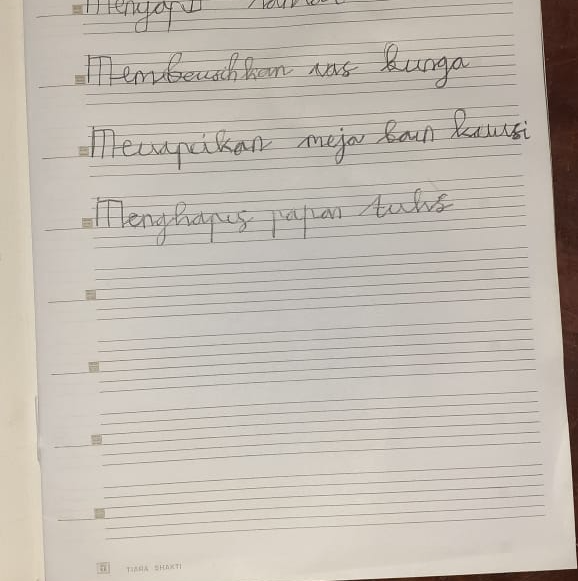 Membersihkan vas bunga
Merapikan meja dan kursi
Menghapus papan tulis
TIARA SHAKTI